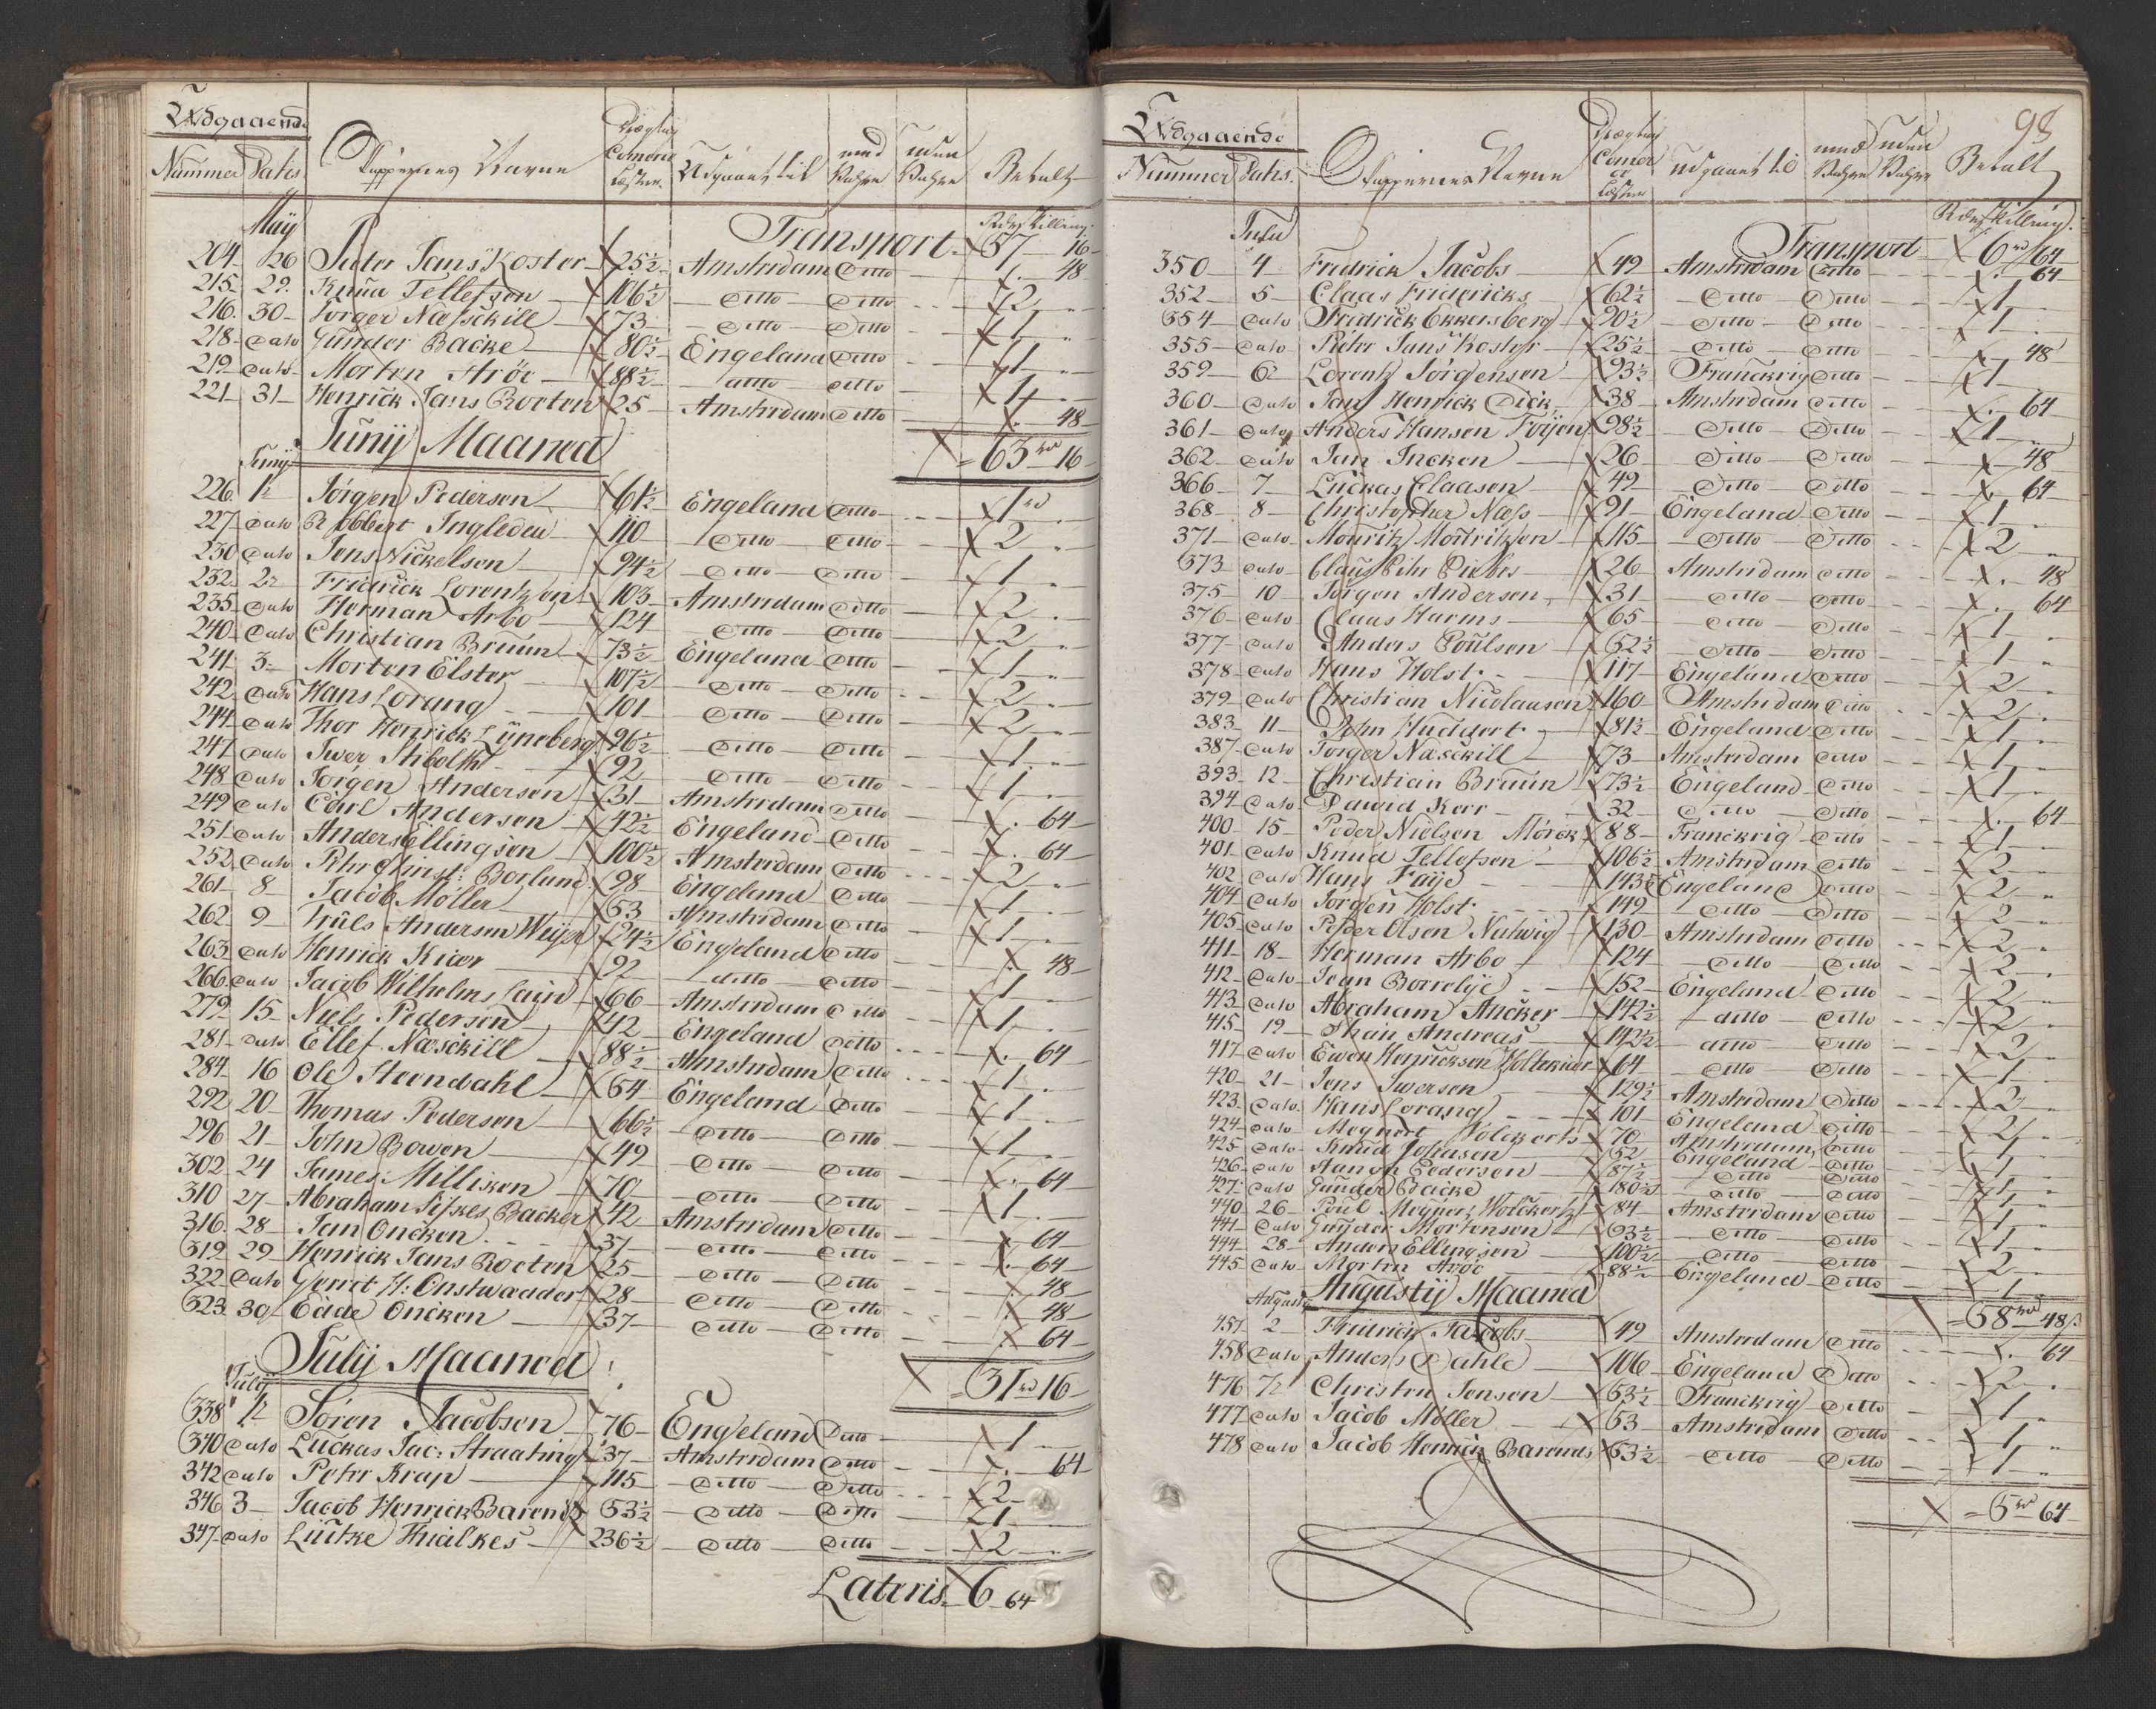 Udgaaende
Nummer Datis Skippernes Navne Drægtig Comerce Læster Udgaaet til med Ladning uden Ladning Betalt
Maÿ Transport Rdr Skilling 57 16
204 26 Pieter Jans Koster 25½ Amsterdam Ditto . 48
215 29 Knud Tellefsen 106½ Ditto Ditto 2
216 30 Torger Næsckill 73 Ditto Ditto 1
218 Dato Gunder Backe 80½ Engeland Ditto 1
219 Dato Morten Aröe 88½ ditto ditto 1
221 31 Henrick Jans Rocten 25 Amsterdam Ditto . 48
Junij Maaned = 63 rd 16
Junij
226 1 Jörgen Pedersen 61½ Engeland Ditto 1 rd
227 Dato Robbert Ingledew 110 Ditto Ditto 2
230 Dato Jens Nickelsen 94½ Ditto Ditto 1
232 2 Fridrick Lorentzen 103 Amsterdam Ditto 2
235 Dato Herman Arbo 124 Ditto Ditto 2
240 Dato Christian Bruun 73½ Engeland Ditto 1
241 3 Morten Elster 107½ Ditto Ditto 2
242 Dato Hans Lorang 101 Ditto Ditto 2
244 Dato Thor Henrick Lÿneberg 96½ Ditto Ditto 1
247 Dato Iwer Stibolth 92 Ditto Ditto 1
248 Dato Jorgen Andersen 31 Amsterdam Ditto . 64
249 Dato Carl Andersen 42½ Engeland Ditto . 64
251 Dato Anders Ellingsen 100½ Amsterdam Ditto 2
252 Dato Petter Christ: Borlund 98 Engeland Ditto 1
261 8 Jacob Möller 53 Amsterdam Ditto 1
262 9 Truls Andersen Weÿer 24½ Engeland Ditto . 48
263 Dato Henrick Kiær 92 ditto Ditto 1
266 Dato Jacob Wilhelms Lain 66 Amsterdam Ditto 1
279 15 Niels Pedersen 42 Engeland Ditto . 64
281 Dato Ellef Næsckill 88½ Amsterdam Ditto 1
284 16 Ole Steendahl 54 Engeland Ditto 1
292 20 Thomas Pedersen 66½ Ditto Ditto 1
296 21 John Bowen 49 Ditto Ditto . 64
302 24 James Milliken 70 Ditto Ditto 1
310 27 Abraham Sifkes Backer 42 Amsterdam Ditto . 64
316 28 Jan Oncken 37 Ditto Ditto . 64
319 29 Henrick Jans Rocten 25 Ditto Ditto . 48
322 Dato Gerret H: Onstwadder 28 Ditto Ditto . 48
323 30 Edde Oncken 37 Ditto Ditto . 64
Julij Maaned = 31 rd 16
Julij
338 1 Sören Jacobsen 76 Engeland Ditto 1
340 Dato Luckas Jac: Straating 37 Amsterdam Ditto . 64
342 Dato Peter Krap 115 Ditto Ditto 2
346 3 Jacob Henrick Barends 53½ Ditto Ditto 1
347 Dato Lütke Thialkes 236½ Ditto Ditto 2
Lateris 6 64
98
Udgaaende
Nummer Datis Skippernes Navne Drægtig Comerce Læster udgaaet til med Ladning uden Ladning Betalt
Julij Transport Rdr Skilling 6 rd 64
350 4 Fredrick Jacobs 49 Amsterdam Ditto . 64
352 5 Claas Fridericks 62½ Ditto Ditto 1
354 Dato Fredrick Ekkersberg 90½ Ditto Ditto 1
355 Dato Peter Jans Koster 25½ Ditto Ditto . 48
359 6 Lorentz Jörgensen 93½ Franckrig Ditto 1
360 Dato Jan Henrick Dick 38 Amsterdam Ditto . 64
361 Dato Anders Hansen Foÿen 98½ Ditto Ditto 1
362 Dato Jan Incken 26 Ditto Ditto . 48
366 7 Luckas Claasen 49 Ditto Ditto . 64
368 8 Christopher Næss 91 Engeland Ditto 1
371 Dato Mouritz Mouritzen 115 Ditto Ditto 2
373 Dato Claus Peter Piebes 26 Amsterdam Ditto . 48
375 10 Jorgen Andersen 31 Ditto Ditto . 64
376 Dato Claus Harms 65 Ditto Ditto 1
377 Dato Anders Poulsen 52½ Ditto Ditto 1
378 Dato Hans Holst 117 Engeland Ditto 2
379 Dato Christian Nicolausen 160 Amsterdam Ditto 2
383 11 John Huddert 81½ Engeland Ditto 1
387 Dato Torger Næsckill 73 Amsterdam Ditto 1
393 12 Christian Bruun 73½ Engeland Ditto 1
394 Dato Dawid Kerr 32 Ditto Ditto . 64
400 15 Peder Nielsen Mörck 88 Franckrig Ditto 1
401 Dato Knud Tellefsen 106½ Amsterdam Ditto 2
402 Dato Hans Faÿe 143½ Engeland Ditto 2
404 Dato Jorgen Holst 149 Ditto Ditto 2
405 Dato Peder Olsen Nalwig 130 Amsterdam Ditto 2
411 18 Herman Arbo 124 Ditto Ditto 2
412 Dato Jean Borrelÿe 152 Engeland Ditto 2
413 Dato Abraham Ancker 142½ ditto Ditto 2
415 19 Andreas 142½ ditto Ditto 2
417 Dato Ewen Henricksen Holtermann 64 Ditto Ditto 1
420 21 Jens Iwersen 129½ Amsterdam Ditto 2
423 Dato Hans Lorang 101 Engeland Ditto 2
424 Dato Meynert Volckerts 70 Amsterdam Ditto 1
425 Dato Knud Johnsen 52 Engeland Ditto 1
426 Dato Pedersen 87½ Ditto Ditto 1
427 Dato Gunder Backe 180½ Ditto Ditto 1
440 26 Poul Meynerts Wolckerts 84 Amsterdam Ditto 1
441 Dato Gunder Mortensen 93½ Ditto Ditto 1
444 28 Anders Ellingsen 100½ Ditto Ditto 2
445 Dato Morten Aröe 88½ Engeland Ditto 1
Augustÿ Maaned = 58 rd 48 s
Augusty
457 2 Fridrick Jacobs 49 Amsterdam Ditto . 64
458 Dato Anders Dahle 106 Engeland Ditto 2
476 7 Christen Jensen 53½ Franckrig Ditto 1
477 Dato Jacob Möller 53 Amsterdam Ditto 1
478 Dato Jacob Henrick Barends 53½ Ditto Ditto 1
= 5 rd 64